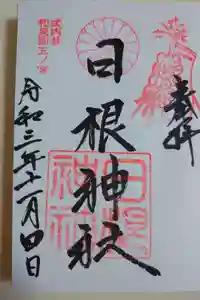 奉拝
日根神社
令和三年十一月四日
式内社
和泉国五ノ宮
日根神社